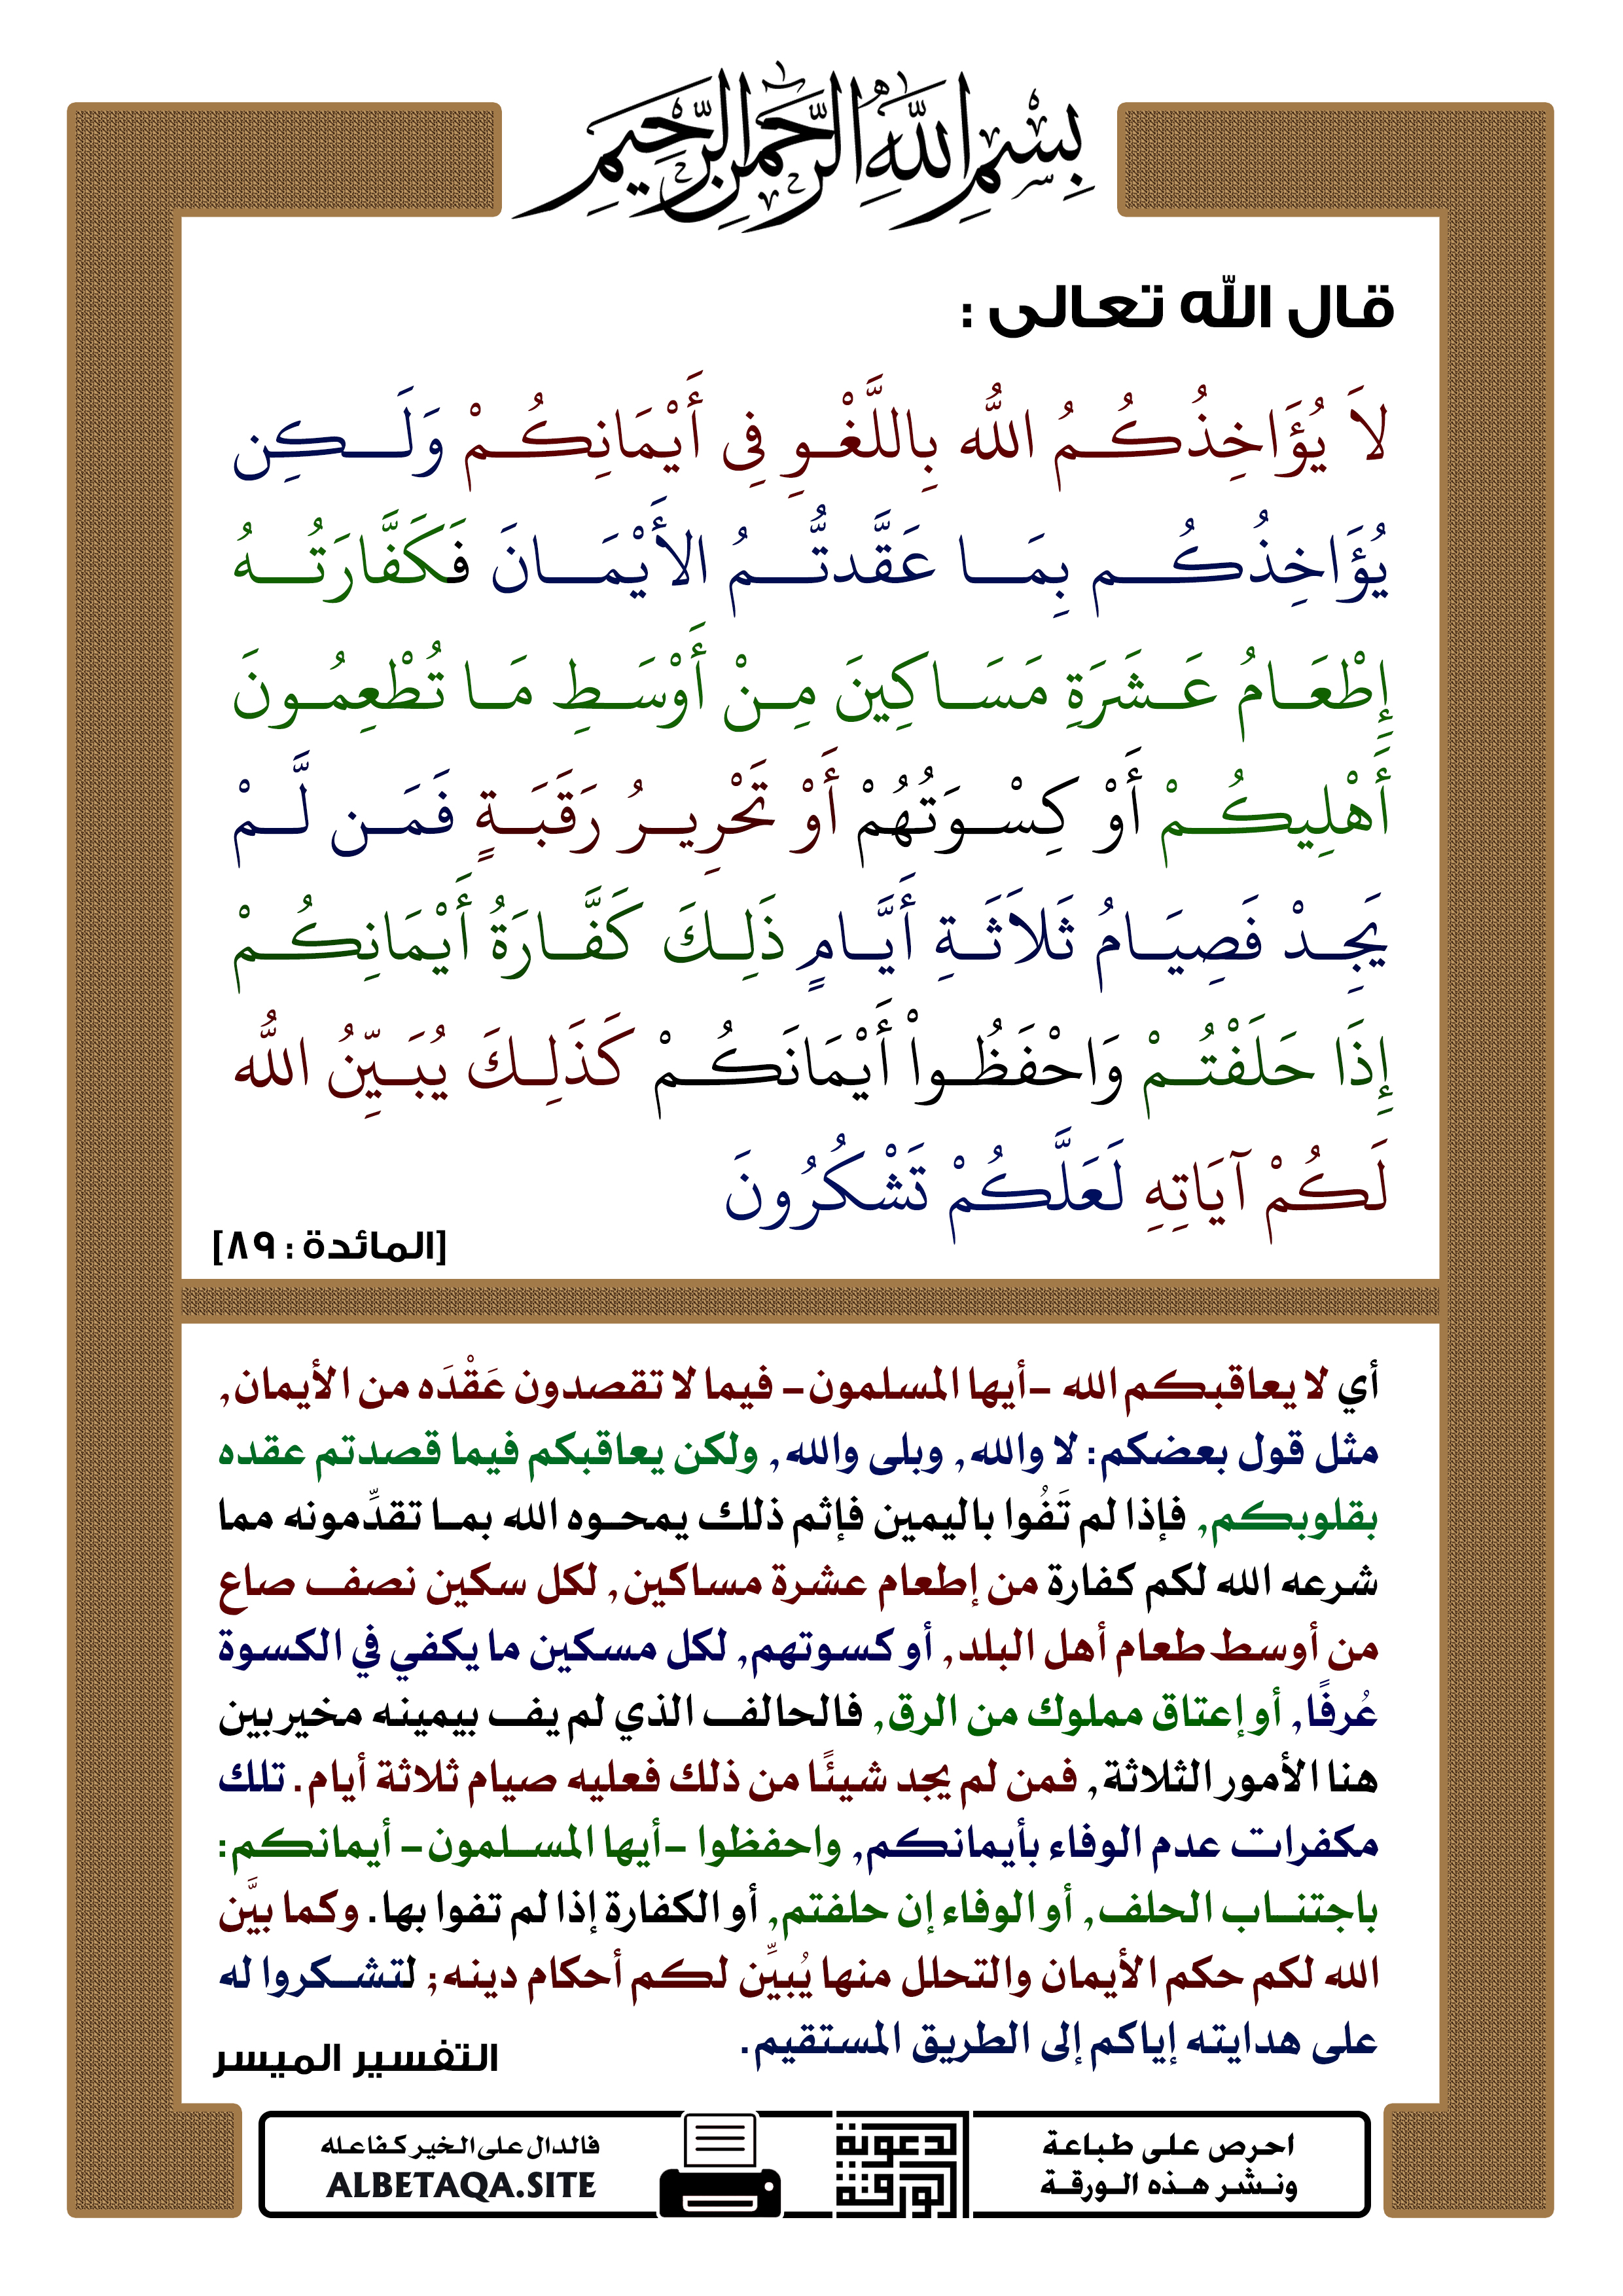 بِسْمِ اللَّهِ الرَّحْمَنِ الرَّحِيمِ
قال الله تعالى :
لاَ يُؤَاخِذُكُمُ اللّٰهُ بِاللَّغْوِ فِي أَيْمَانِكُمْ وَلَكِن
يُؤَاخِذُكُم بِمَا عَقَّدتُّمُ الأَيْمَانَ فَكَفَّارَتُهُ
إِطْعَامُ عَشَرَةِ مَسَاكِينَ مِنْ أَوْسَطِ مَا تُطْعِمُونَ
أَهْلِيكُمْ أَوْ كِسْوَتُهُمْ أَوْ تَحْرِيرُ رَقَبَةٍ فَمَن لَّمْ
يَجِدْ فَصِيَامُ ثَلاَثَةِ أَيَّامٍ ذَلِكَ كَفَّارَةُ أَيْمَانِكُمْ
إِذَا حَلَفْتُمْ وَاحْفَظُواْ أَيْمَانَكُمْ كَذَلِكَ يُبَيِّنُ اللّٰهُ
لَكُمْ آيَاتِهِ لَعَلَّكُمْ تَشْكُرُونَ
[المائدة : ٨٩]
أي لا يعاقبكم الله -أيها المسلمون- فيما لا تقصدون عَقْدَه من الأيمان,
مثل قول بعضكم: لا والله, وبلى والله, ولكن يعاقبكم فيما قصدتم عقده
بقلوبكم, فإذا لم تَفُوا باليمين فإثم ذلك يمحوه الله بما تقدِّمونه مما
شرعه الله لكم كفارة من إطعام عشرة مساكين, لكل سكين نصف صاع
من أوسط طعام أهل البلد, أو كسوتهم, لكل مسكين ما يكفي في الكسوة
عُرفًا, أو إعتاق مملوك من الرق, فالحالف الذي لم يف بيمينه مخير بين
هنا الأمور الثلاثة, فمن لم يجد شيئًا من ذلك فعليه صيام ثلاثة أيام. تلك
مكفرات عدم الوفاء بأيمانكم, واحفظوا -أيها المسلمون- أيمانكم:
باجتناب الحلف, أو الوفاء إن حلفتم, أو الكفارة إذا لم تفوا بها. وكما بيَّن
الله لكم حكم الأيمان والتحلل منها يُبيِّن لكم أحكام دينه; لتشكروا له
على هدايته إياكم إلى الطريق المستقيم.
التفسير الميسر
احرص على طباعة
ونشر هذه الورقة
الدعوية
الورقة
فالدال على الخير كفاعله
ALBETAQA.SITE